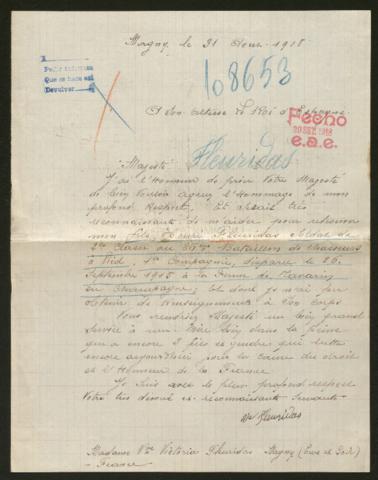 Magny, le 31 Aout 1918
Pedir informes
Que se hace así
Devolver
108653
A Son Altesse Le Roi d'Espagne
Fecho
20 SET. 1918
e.a.e.
Majesté
Fleuridas
J'ai l'Honneur de prier Votre Majesté
de bien Vouloir agréer l'Hommage de mon
profond Respect, Et serait très
reconnaissante de m'aider pour retrouver
mon fils Fleuridas soldat de
2me Classe au Bataillon de Chasseurs
à Pied, 1re Compagnie, disparu le 26
Septembre 1915 à la Ferme de Navarin
en Champagne, et dont je n'ai pu
obtenir de renseignements à son Corps
Vous rendriez Majesté un bien grand
service à une Mère bien dans la peine
qui a encore 2 fils et gendre qui lutte
encore aujourd'hui pour la cause du droit
et l'Honneur de la France
Je suis avec le plus profond respect
Votre très dévoué et reconnaissante Servante
Vve Fleuridas
Madame Vve Victoria Fleuridas Magny (Eure et Loir)
- France -